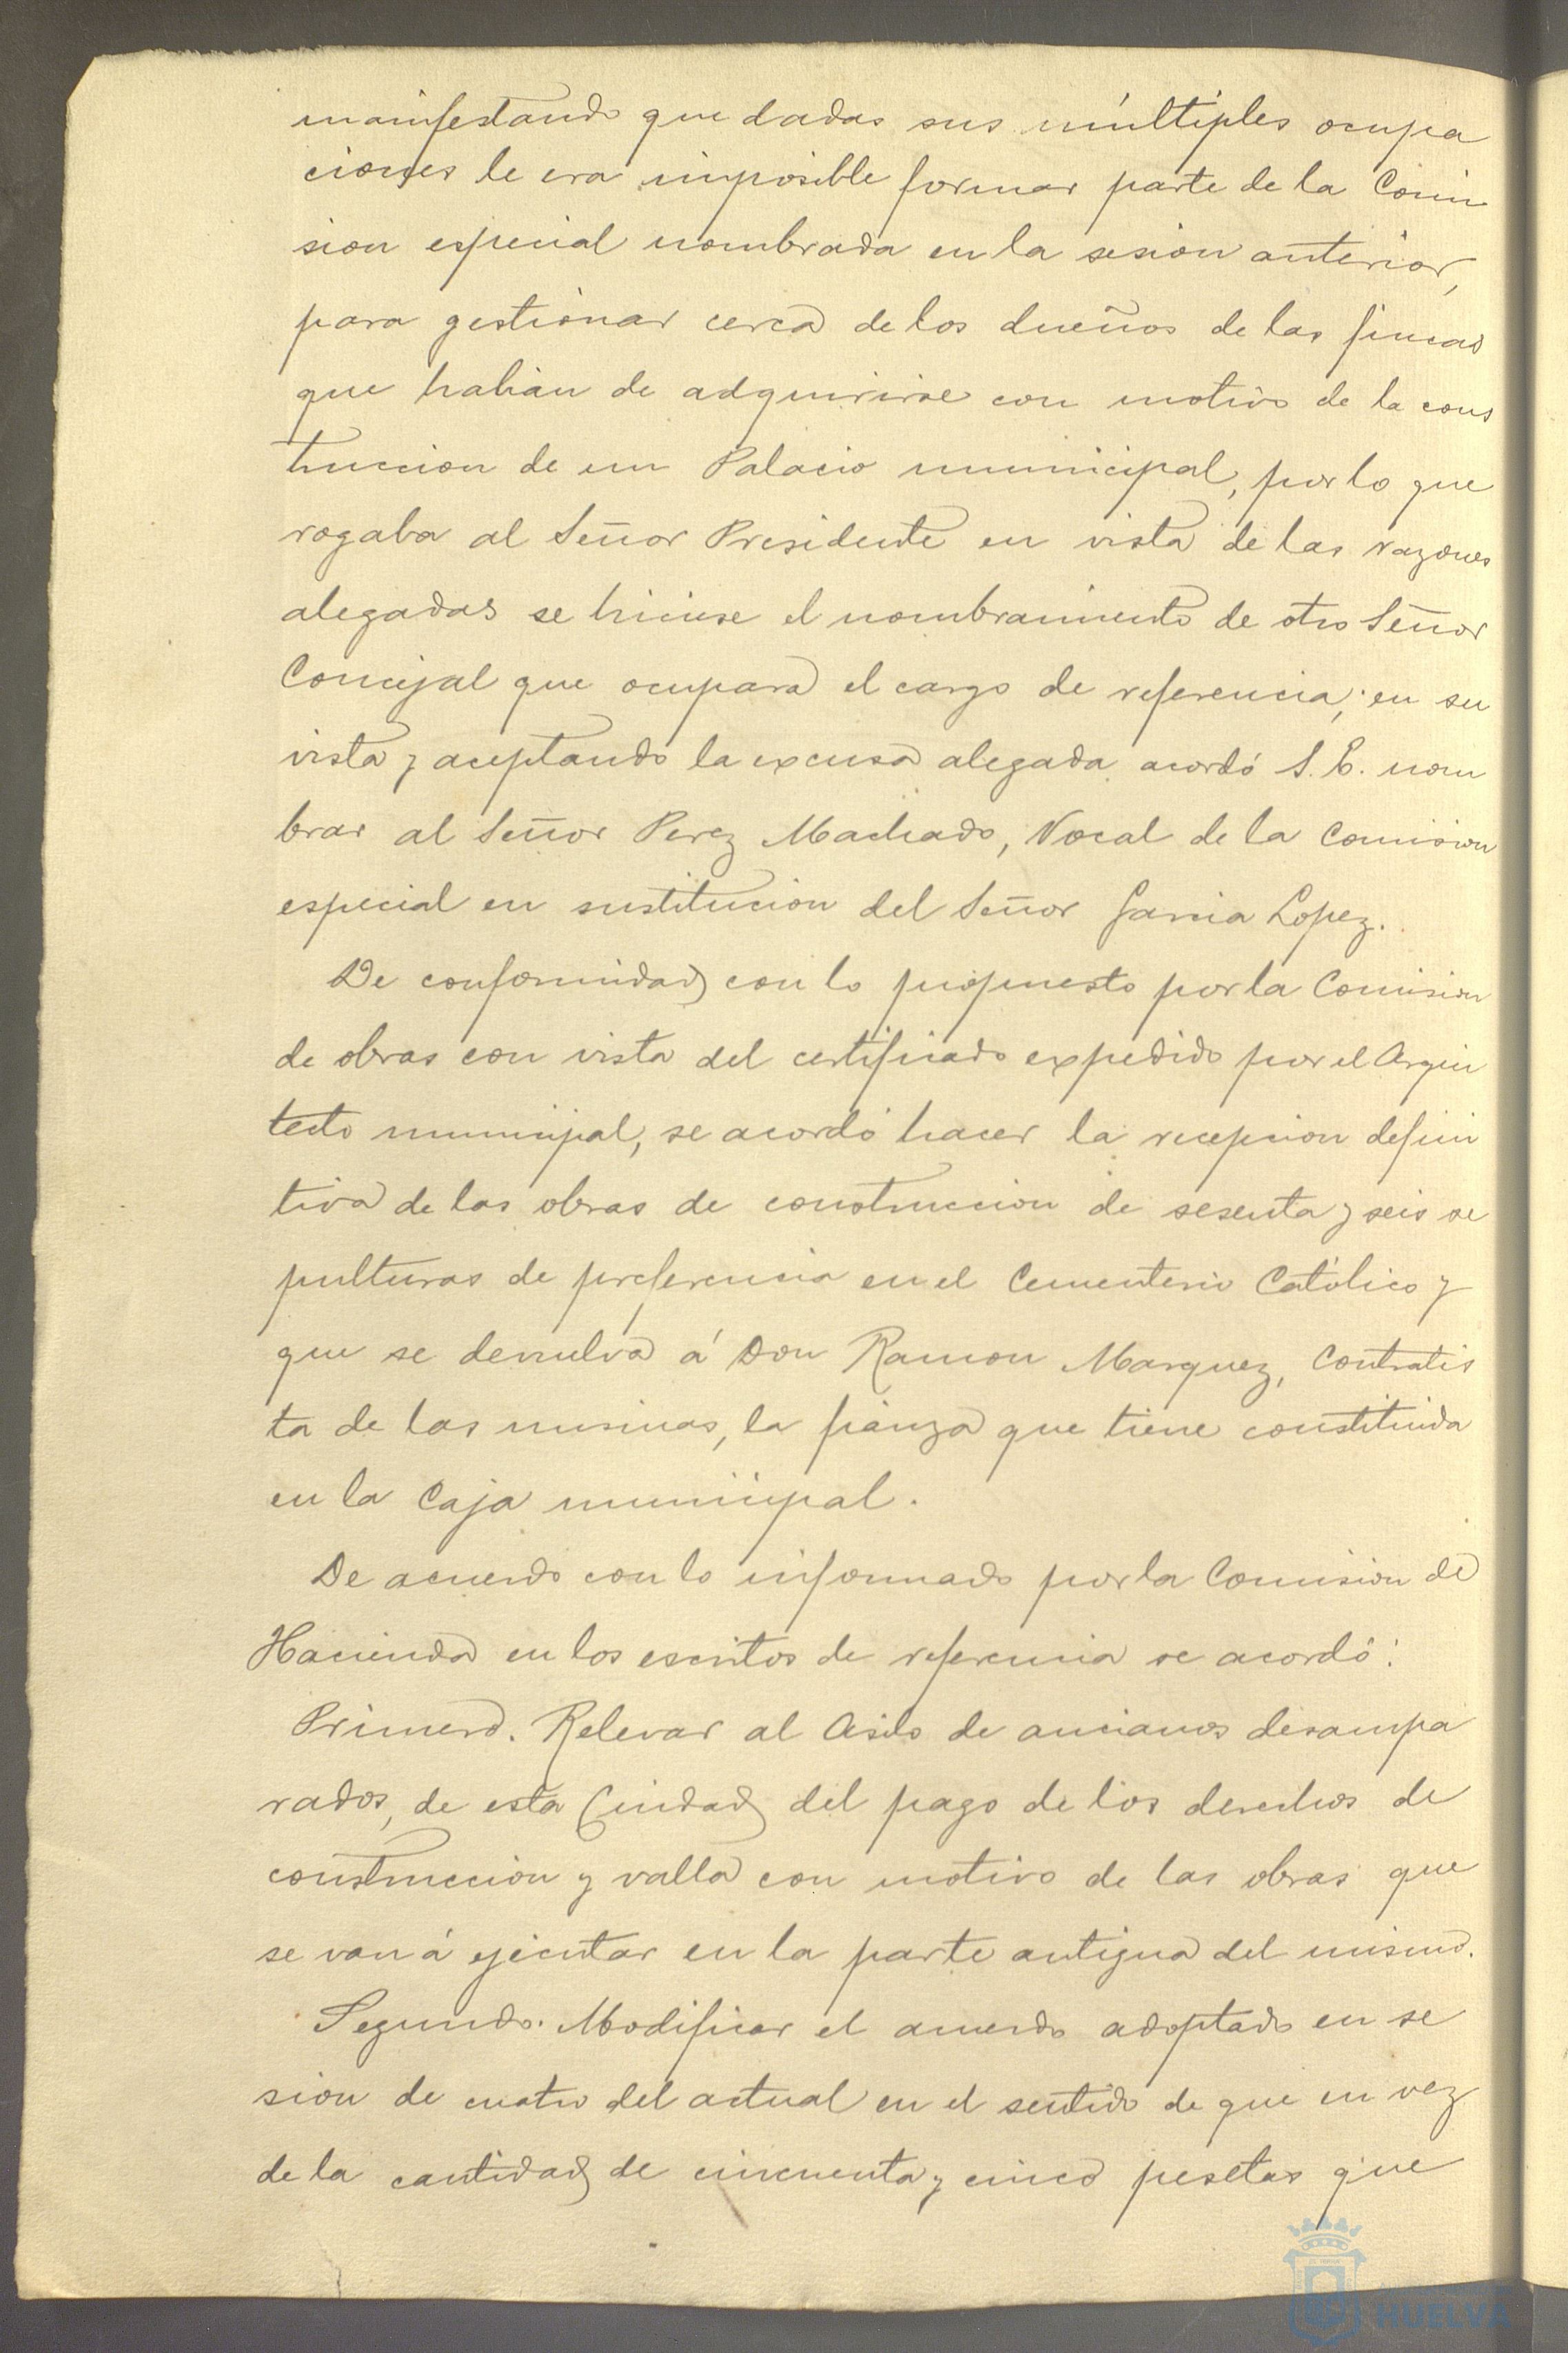 manifestando que dadas sus múltiples ocupa
ciones le era imposible formar parte de la Comi
sion especial nombrada en la sesion anterior,
para gestionar cerca de los dueños de las fincas
que habian de adquirirse con motivo de la cons
truccion de un Palacio municipal, por lo que
rogaba al Señor Presidente en vista de las razones
alegadas se hiciese el nombramiento de otro Señor
Concejal que ocupara el cargo de referencia; en su
vista y aceptando la excusa alegada acordó S. E. nom
brar al Señor Perez Machado, Vocal de la Comision
especial en sustitucion del Señor Garcia Lopez.
De conformidad con lo propuesto por la Comision
de obras con vista del certificado expedido por el Arqui
tecto municipal, se acordó hacer la recepcion defini
tiva de las obras de construccion de sesenta y seis se
pulturas de preferencia en el Cementerio Católico y
que se devuelva á Don Ramon Marquez, Contratis
ta de las mismas, la fianza que tiene constituida
en la Caja municipal.
De acuerdo con lo informado por la Comision de
Hacienda en los escritos de referencia se acordó:
Primero. Relevar al Asilo de ancianos desampa
rados, de esta Ciudad del pago de los derechos de
construccion y valla con motivo de las obras que
se van á ejecutar en la parte antigua del mismo.
Segundo. Modificar el acuerdo adoptado en se
sion de cuatro del actual en el sentido de que en vez
de la cantidad de cincuenta y cinco pesetas que
HUELVA